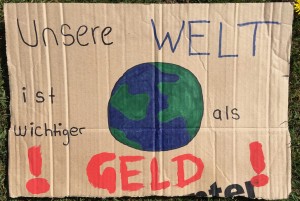 Unsere WELT
ist
wichtiger als
! GELD !